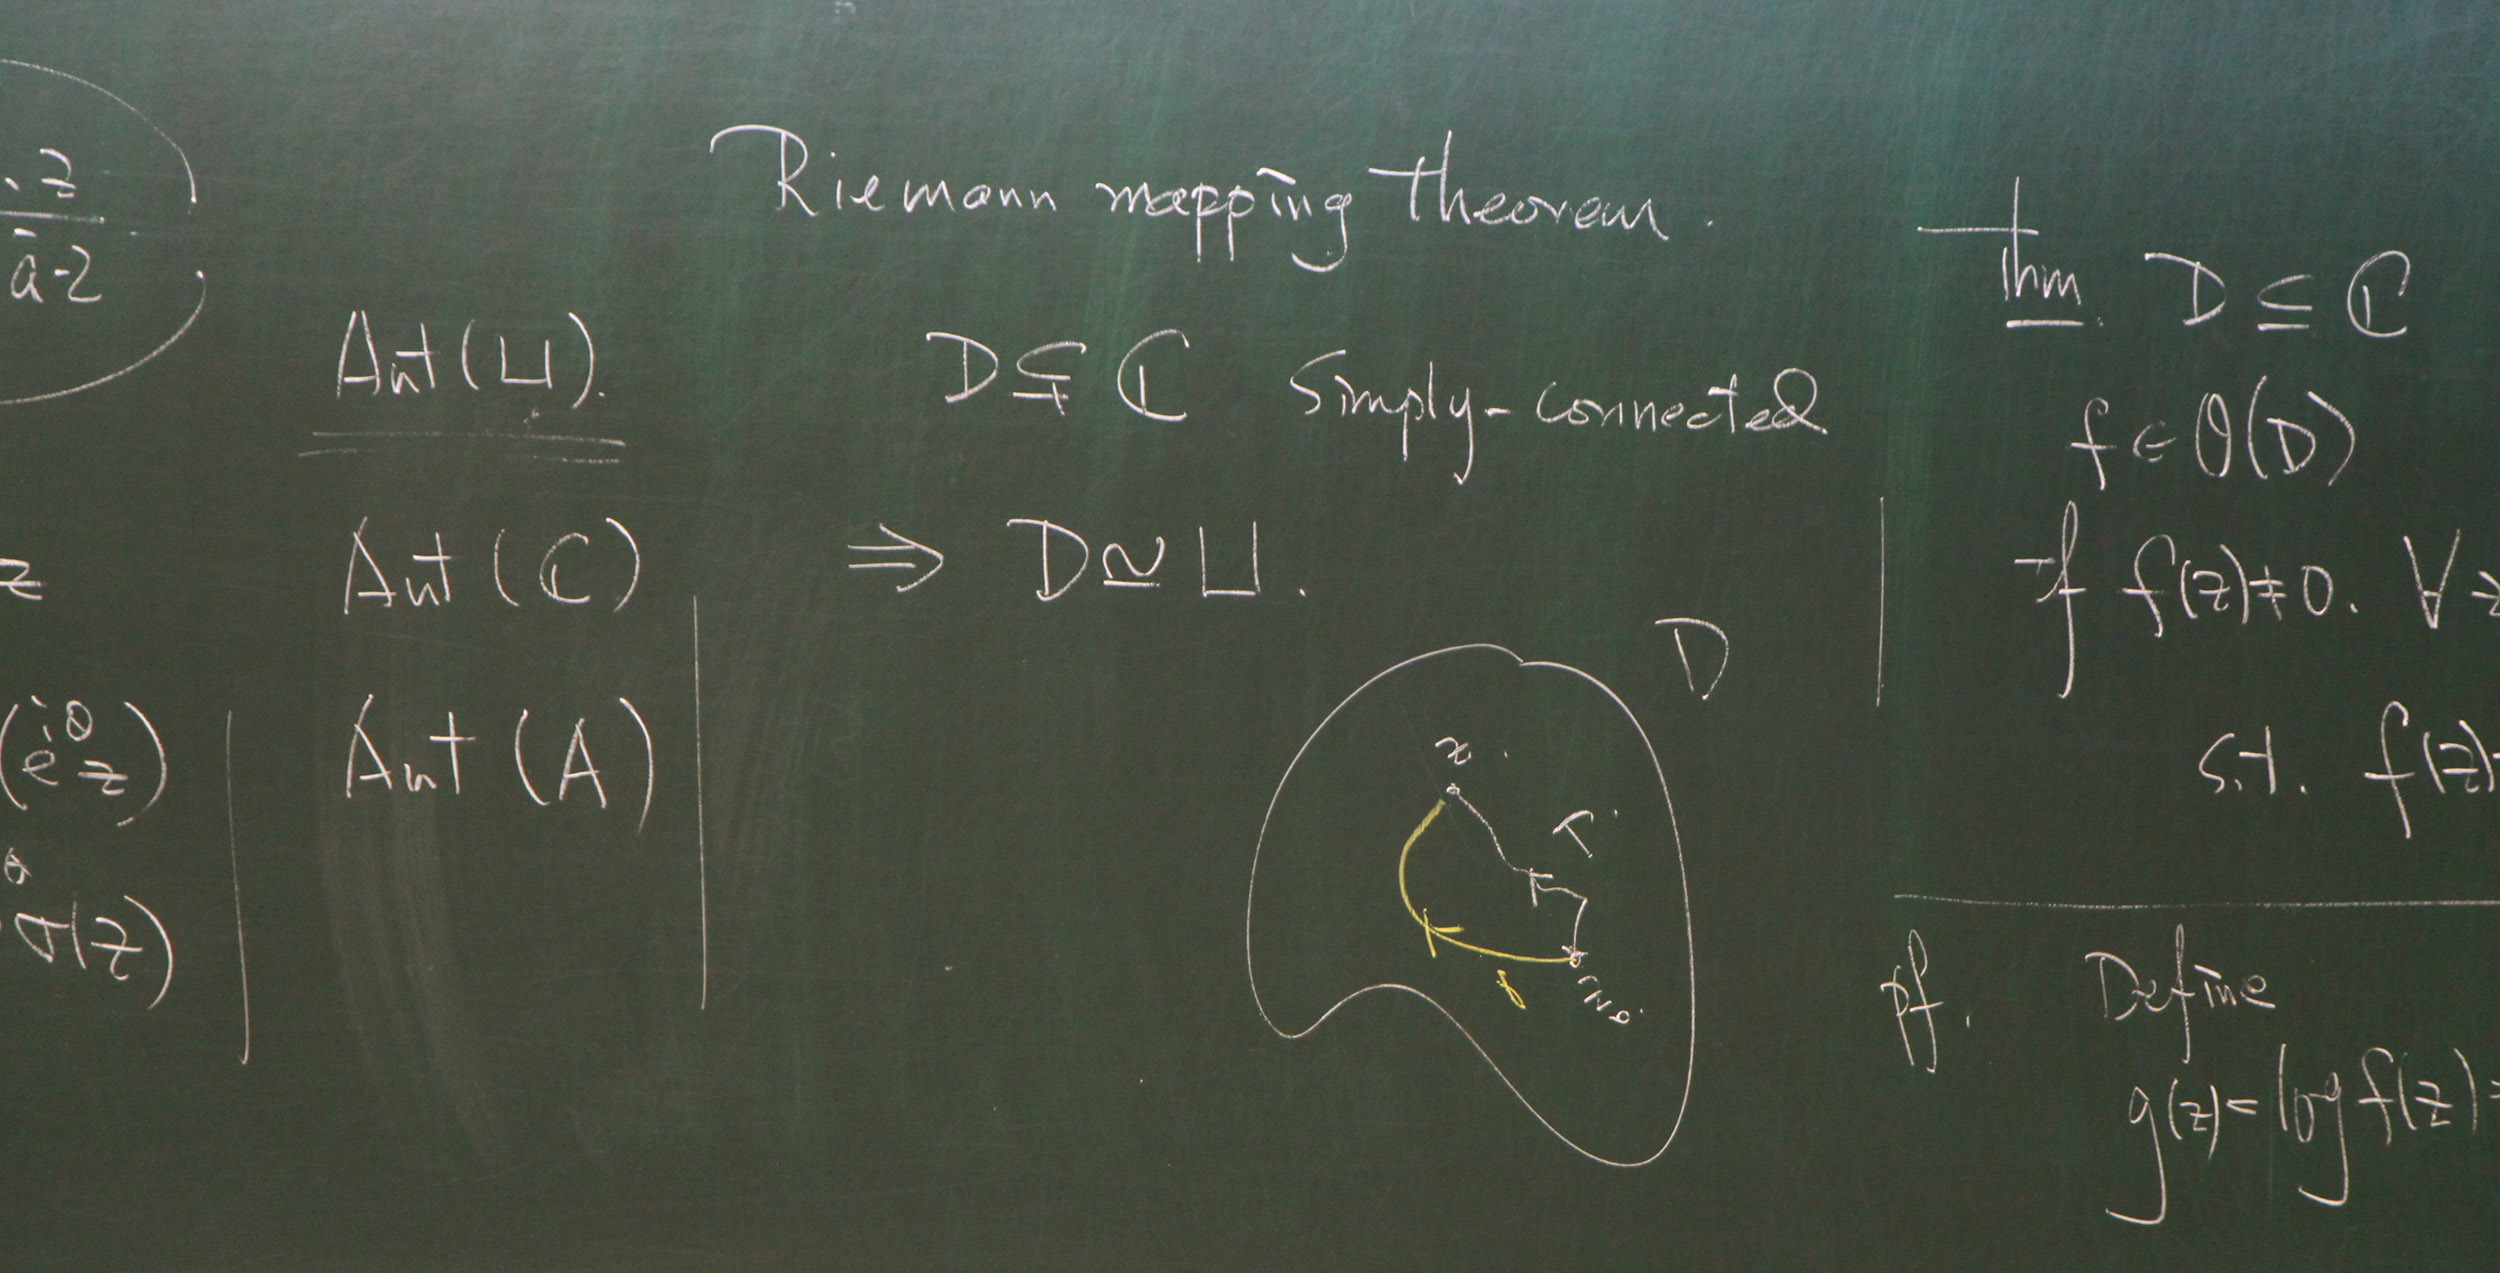 z
ā-z
z
(e^{iθ}z)
σ(z)
Aut(⊔).
Aut(ℂ)
Aut(A)
Riemann mapping theorem.
D⊊ℂ simply-connected
⇒ D≃⊔.
D
z
γ
z₀
Thm. D⊆ℂ
f∈O(D)
if f(z)≠0. ∀z
s.t. f(z)
pf. Define
g(z)=log f(z)=